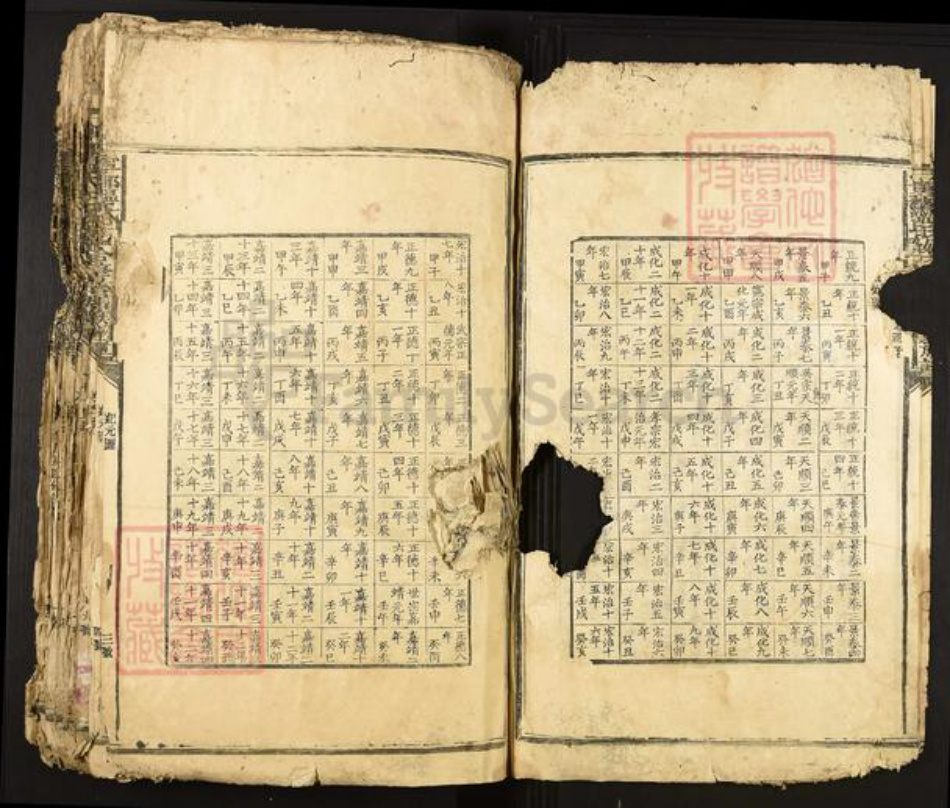 正統九年甲子 正統十年乙丑 正統十一年丙寅 正統十二年丁卯 正統十三年戊辰 正統十四年己巳 景泰元年庚午 景泰二年辛未 景泰三年壬申 景泰四年癸酉
景泰五年甲戌 景泰六年乙亥 景泰七年丙子 英宗天順元年丁丑 天順二年戊寅 天順三年己卯 天順四年庚辰 天順五年辛巳 天順六年壬午 天順七年癸未
天順八年甲申 憲宗成化元年乙酉 成化二年丙戌 成化三年丁亥 成化四年戊子 成化五年己丑 成化六年庚寅 成化七年辛卯 成化八年壬辰 成化九年癸巳
成化十年甲午 成化十一年乙未 成化十二年丙申 成化十三年丁酉 成化十四年戊戌 成化十五年己亥 成化十六年庚子 成化十七年辛丑 成化十八年壬寅 成化十九年癸卯
成化二十年甲辰 成化二十一年乙巳 成化二十二年丙午 成化二十三年丁未 孝宗宏治元年戊申 宏治二年己酉 宏治三年庚戌 宏治四年辛亥 宏治五年壬子 宏治六年癸丑
宏治七年甲寅 宏治八年乙卯 宏治九年丙辰 宏治十年丁巳 宏治十一年戊午 宏治 宏治十年辛酉 宏治十五年壬戌 宏治十六年癸亥
宏治十七年甲子 宏治十八年乙丑 武宗正德元年丙寅 正德二年丁卯 正德三年戊辰 辛未 正德七年壬申 正德八年癸酉
正德九年甲戌 正德十年乙亥 正德十一年丙子 正德十二年丁丑 正德十三年戊寅 正德十四年己卯 正德十五年庚辰 正德十六年辛巳 世宗嘉靖元年壬午 嘉靖二年癸未
嘉靖三年甲申 嘉靖四年乙酉 嘉靖五年丙戌 嘉靖六年丁亥 嘉靖七年戊子 嘉靖八年己丑 嘉靖九年庚寅 嘉靖十年辛卯 嘉靖十一年壬辰 嘉靖十二年癸巳
嘉靖十三年甲午 嘉靖十四年乙未 嘉靖十五年丙申 嘉靖十六年丁酉 嘉靖十七年戊戌 嘉靖十八年己亥 嘉靖十九年庚子 嘉靖二十年辛丑 嘉靖二十一年壬寅 嘉靖二十二年癸卯
嘉靖二十三年甲辰 嘉靖二十四年乙巳 嘉靖二十五年丙午 嘉靖二十六年丁未 嘉靖二十七年戊申 嘉靖二十八年己酉 嘉靖二十九年庚戌 嘉靖三十年辛亥 嘉靖三十一年壬子 嘉靖三十二年癸丑
嘉靖三十三年甲寅 嘉靖三十四年乙卯 嘉靖三十五年丙辰 嘉靖三十六年丁巳 嘉靖三十七年戊午 嘉靖三十八年己未 嘉靖三十九年庚申 嘉靖四十年辛酉 嘉靖四十一年壬戌 嘉靖四十二年癸亥
紀元圖